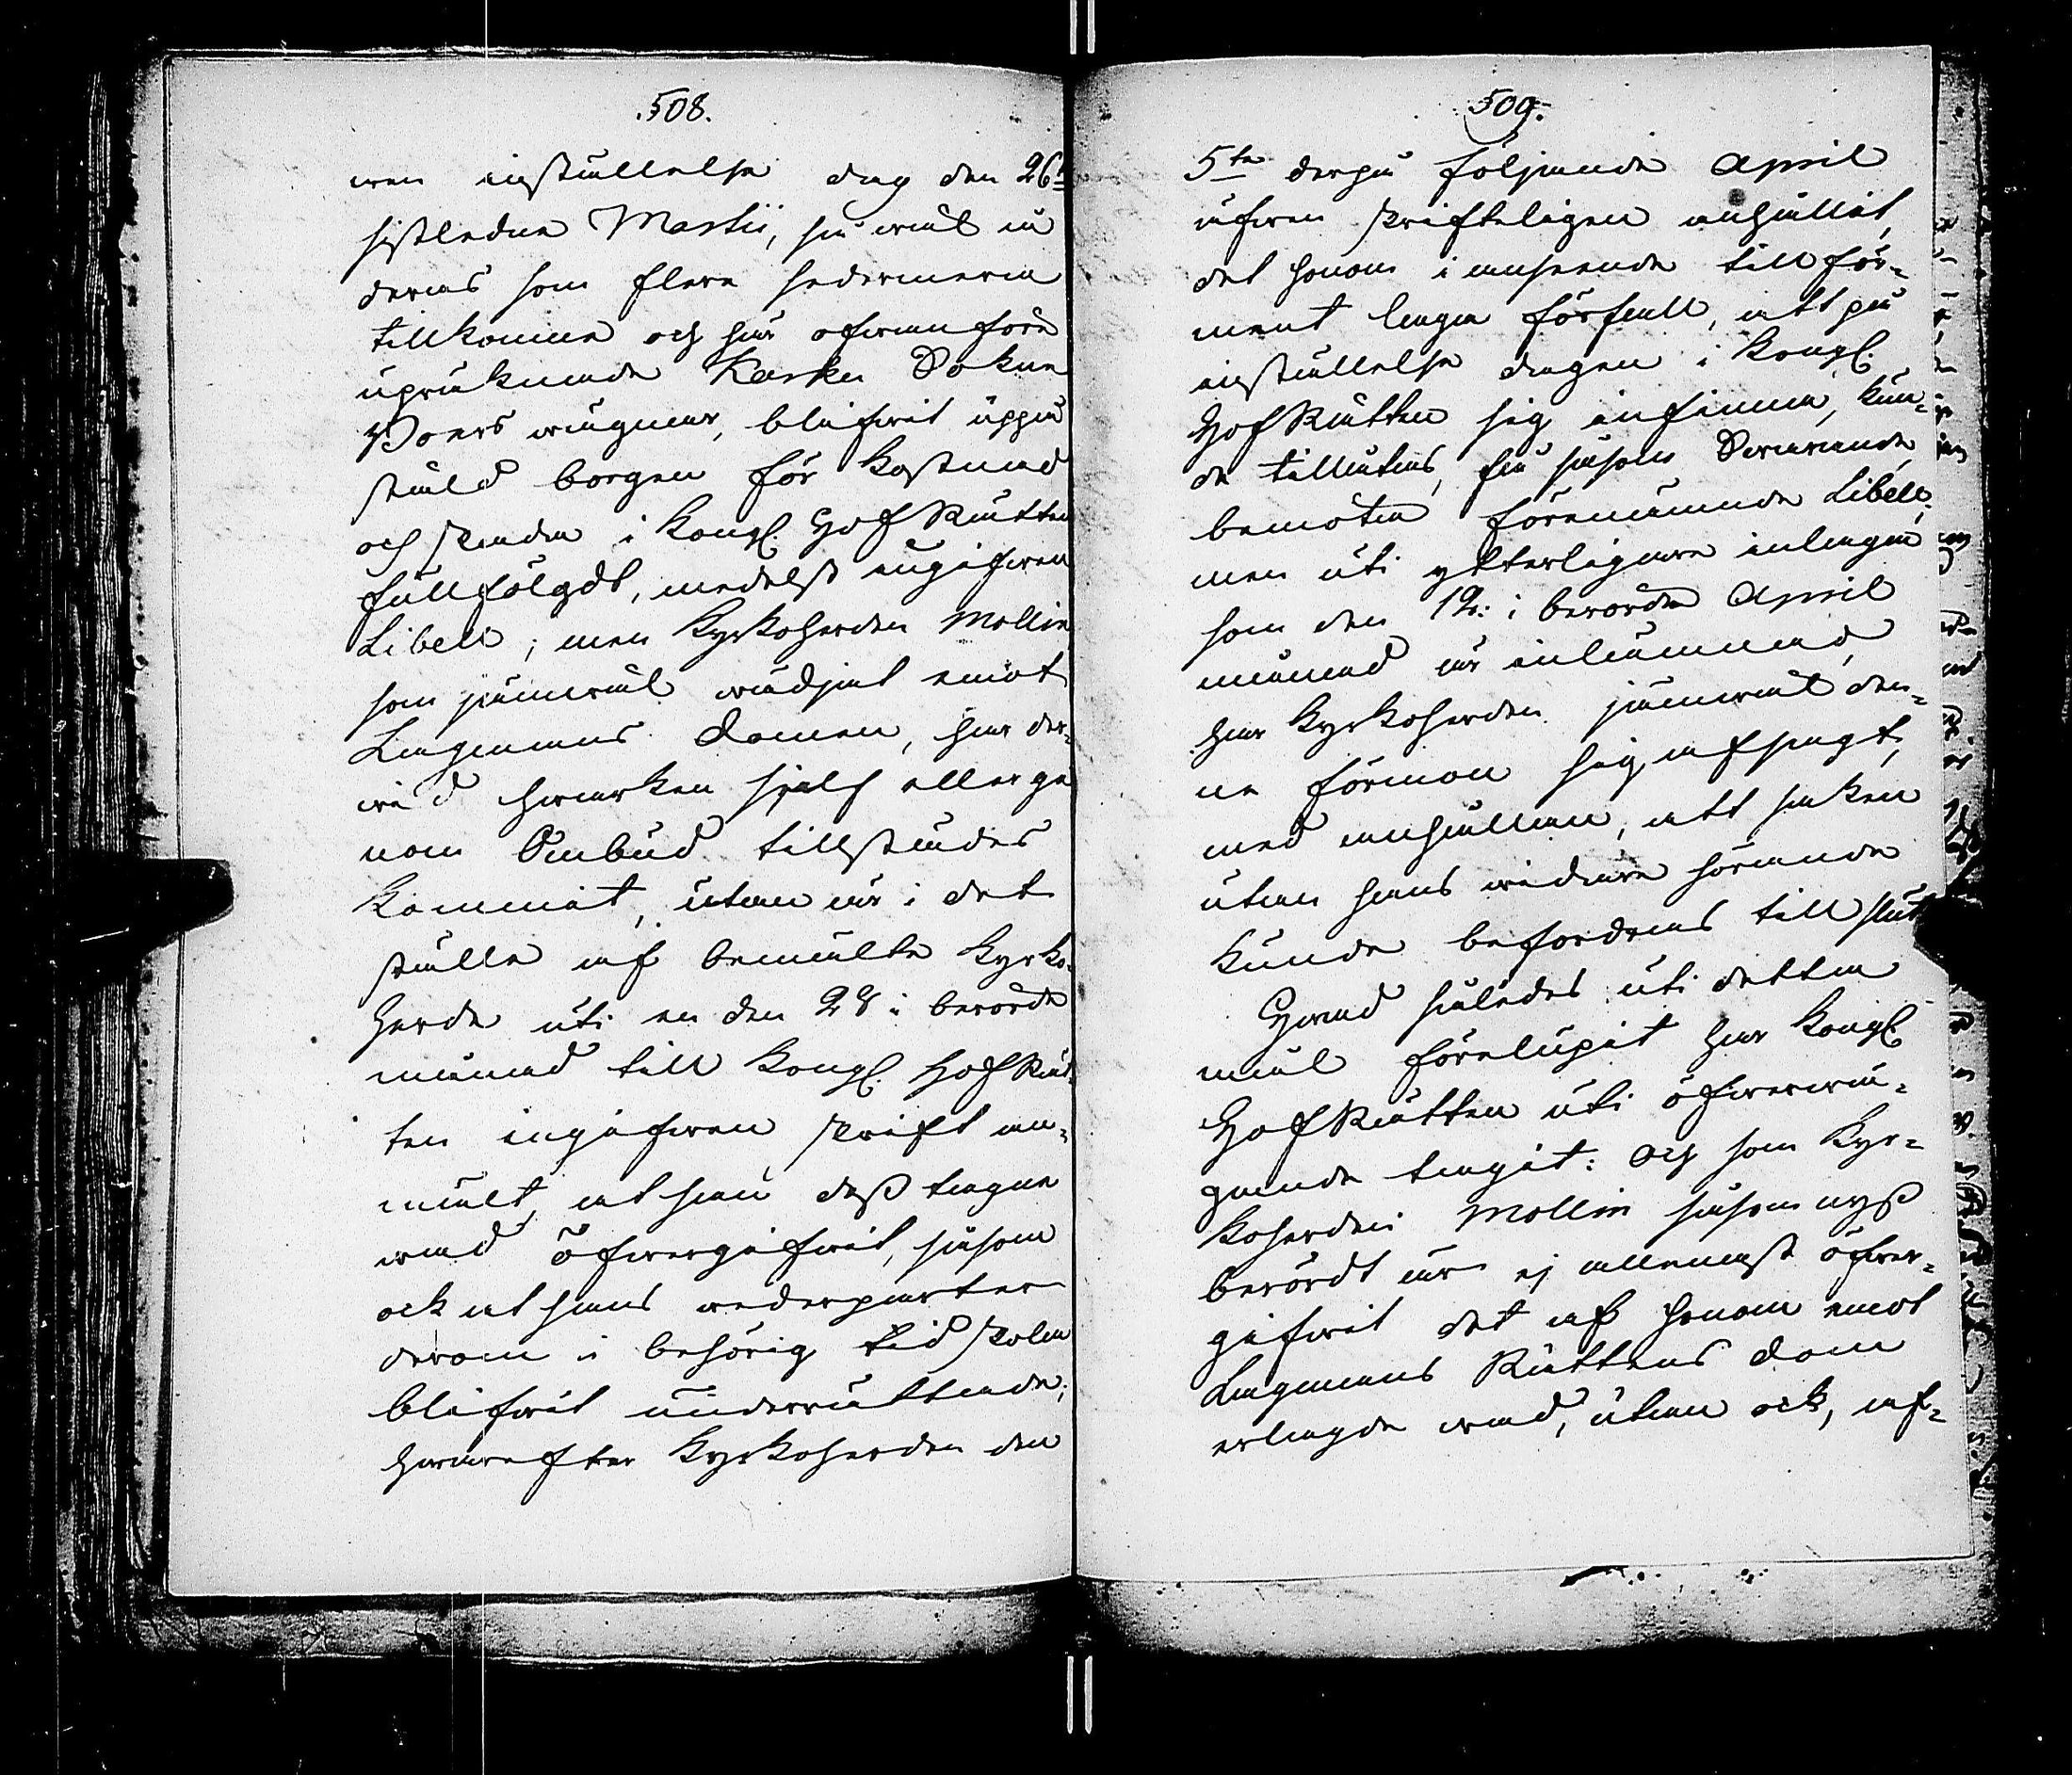 508.
wen inställelse dag den 26
sistledne Martii, så wäl å
deras som flere sedermera
tillkomne och här ofwanföre
upräknade Karku Sokne
Boers wägnar, blifwit uppå
stäld borgen för kostnad
och skada i Kongl. HofRätten
fullfölgdt, medelst ingifwen
Libell; men Kyrkoherden Mollin
som jämwäl wädjat emot
Lagmans domen, har der¬
wid hwarken sjelf eller ge
nom Ombud tillstädes
kommit, utan är i det
ställe af bemälte Kyrko¬
herde uti en den 28 i berörde
månad till Kongl. HofRät¬
ten ingifwen skrift an¬
mält, at han dess tagne
wad öfwergifwit, såsom
ock at hans wederparter
derom i behörig tid skola
blifwit underrättade;
hwarefter Kyrkoherden den
509.
5te derpå följande April
äfwen skrifteligen anhållit,
det honom i anseende till för¬
ment laga förfall, att på
inställelse dagen i Kongl.
HofRätten sig infinna, kun¬
de tillåtas, få såsom Swarande
bemöta förenämnde Libell;
men uti ytterligare inlaga
som den 19. i berörde April
månad är inlämnad,
har Kyrkoherden jämwäl den¬
ne förmon sig afsagt,
med anhållan, att saken
utan hans widare hörande
kunde befordras till slut
Hwad således uti detta
mål förelupit har Kongl.
HofRätten uti öfwerwä¬
gande tagit: och som Kyr¬
koherden Mollin såsom nyss
berördt är ej allenast öfwer¬
gifwit det af honom emot
Lagmans Rättens dom
erlagde wad, utan ock, af¬